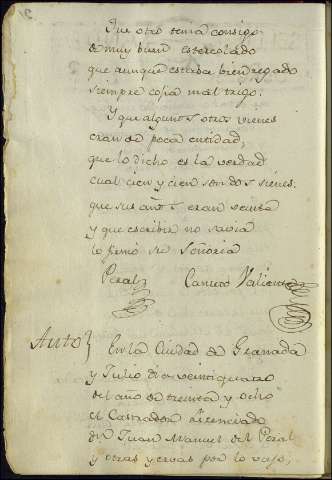 Que otro tenia consigo
de muy buen estercolado
que aunque estaba bien regado
siempre cojia mal trigo.
Y que algunos otros vienes
eran de poca entidad,
que lo dicho es la verdad
cual cien y cien son dos sienes.
que sus años eran veinte
y que escribir no savia
lo firmó su Señoria
Peral Cantero Valiente
Auto En la Ciudad de Granada
y Julio dia veintiquatro
del año de treinta y ocho
el Castrador Licenciado
dn Juan Manuel del Peral
y otras yervas por lo vajo,